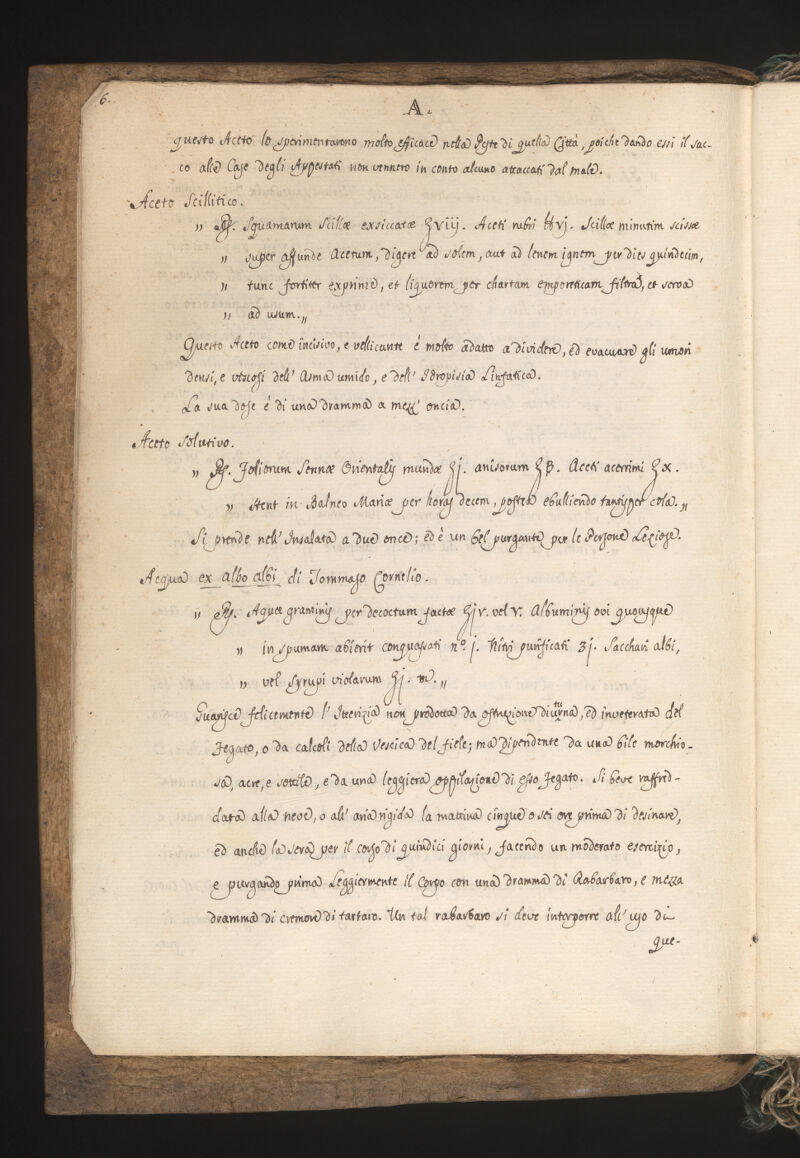 6.
A.
questo Aceto lo sperimentarono molto efficace nella Peste di quella Città, poiche dando essi il sac-
co alle Case degli Appestati non vennero in conto alcuno attaccati dal male.
Aceto Scillitico.
„ ℞. Squamarum Scillæ exsiccatæ ℥viij. Aceti rubri ℔vj. Scillæ minutim scissæ
„ super affunde Acetum, digere ad solem, aut ad lenem ignem per dies quindecim,
„ tunc fortiter exprime, et liquorem per chartam emporeticam filtra, et serva
„ ad usum.„
Questo Aceto come incisivo, e vellicante è molto adatto a dividere, ed evacuare gli umori
densi, e viscosi dell' Asma umido, e dell' Idropisia Linfatica.
La sua dose è di una dramma a mezz' oncia.
Aceto solutivo.
„ ℞. Foliorum Sennæ Orientalis mundæ ℥j. anisorum ℥ß. Aceti acerrimi ℥x.
„ stent in Balneo Mariæ per horas decem, postea ebulliendo tantisper cola.„
Si prende nell' Insalata a due once; ed è un bel purgante per le Persone Leziose.
Acqua ex albo albi di Tommaso Cornelio.
„ ℞. Aquæ graminis per decoctum factæ ℥jv. vel v. Albuminis ovi quousque
„ in spumam abierit conquassati nº. j. Nitri purificati ʒj. Sacchari albi,
„ vel syrupi violarum ℥j. m.„
Guarisce felicemente l' Itterizia non prodotta da ostruzione diuturna, ed inveterata del
Fegato, o da calcoli della Vescica del fiele; ma dipendente da una bile morchio-
sa, acre, e sottile, e da una leggiera oppilazione di esso Fegato. Si beve raffred-
data alla neve, o all' aria rigida la mattina cinque o sei ore prima di desinare,
ed anche la sera per il corso di quindici giorni, facendo un moderato esercizio,
e purgando prima Leggiermente il Corpo con una dramma di Rabarbaro, e mezza
dramma di cremore di tartaro. Un tal rabarbaro si deve interporre all' uso di
que-